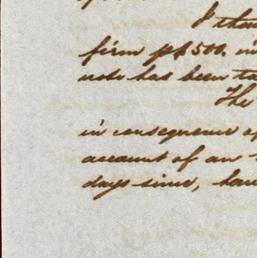 I
firm $500. in
note has been
The
in consequence of
account of an
days since,